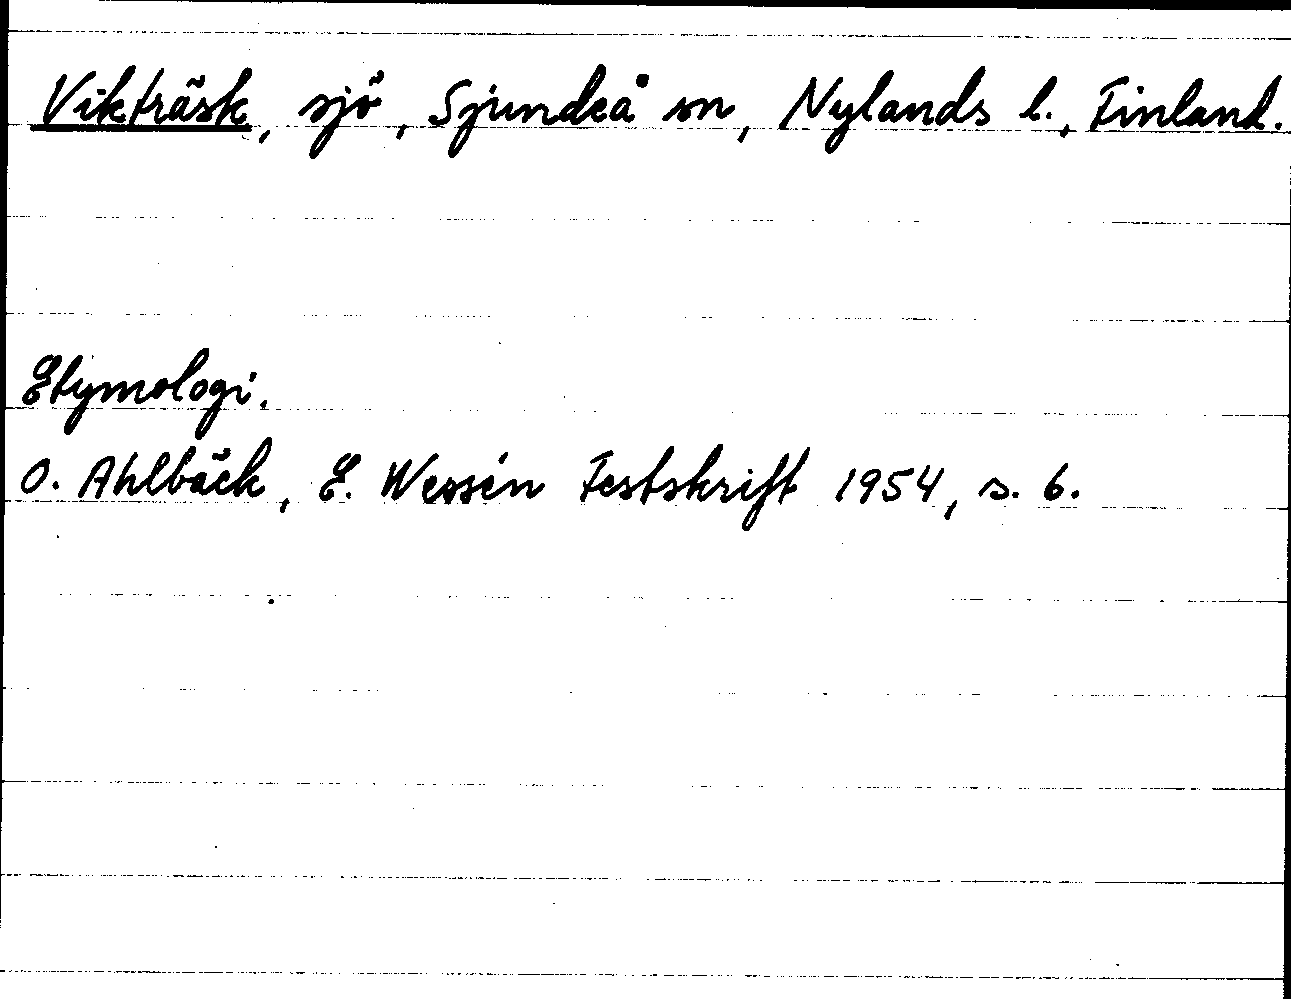 Vikträsk, sjö, Sjundeå sn, Nylands l., Finland.
Etymologi.
O. Ahlbäck, E. Wessén Festskrift 1954, s. 6.